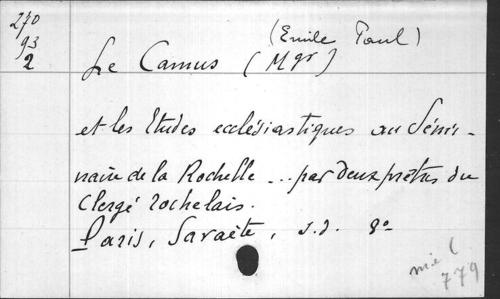 270
93
2
(Emile Paul)
Le Camus (Mgr)
et les Etudes ecclésiastiques au Sémi-
naire de la Rochelle ... par deux prêtres du
Clergé rochelais.
Paris, Savaète, s.d. 8°
779